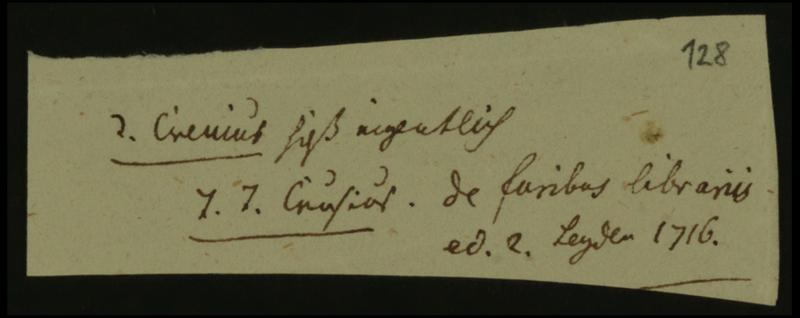 128
Crenius hieß eigentlich
T. T. Crusius. de furibus librariis
ed. 2. Leyden 1716.